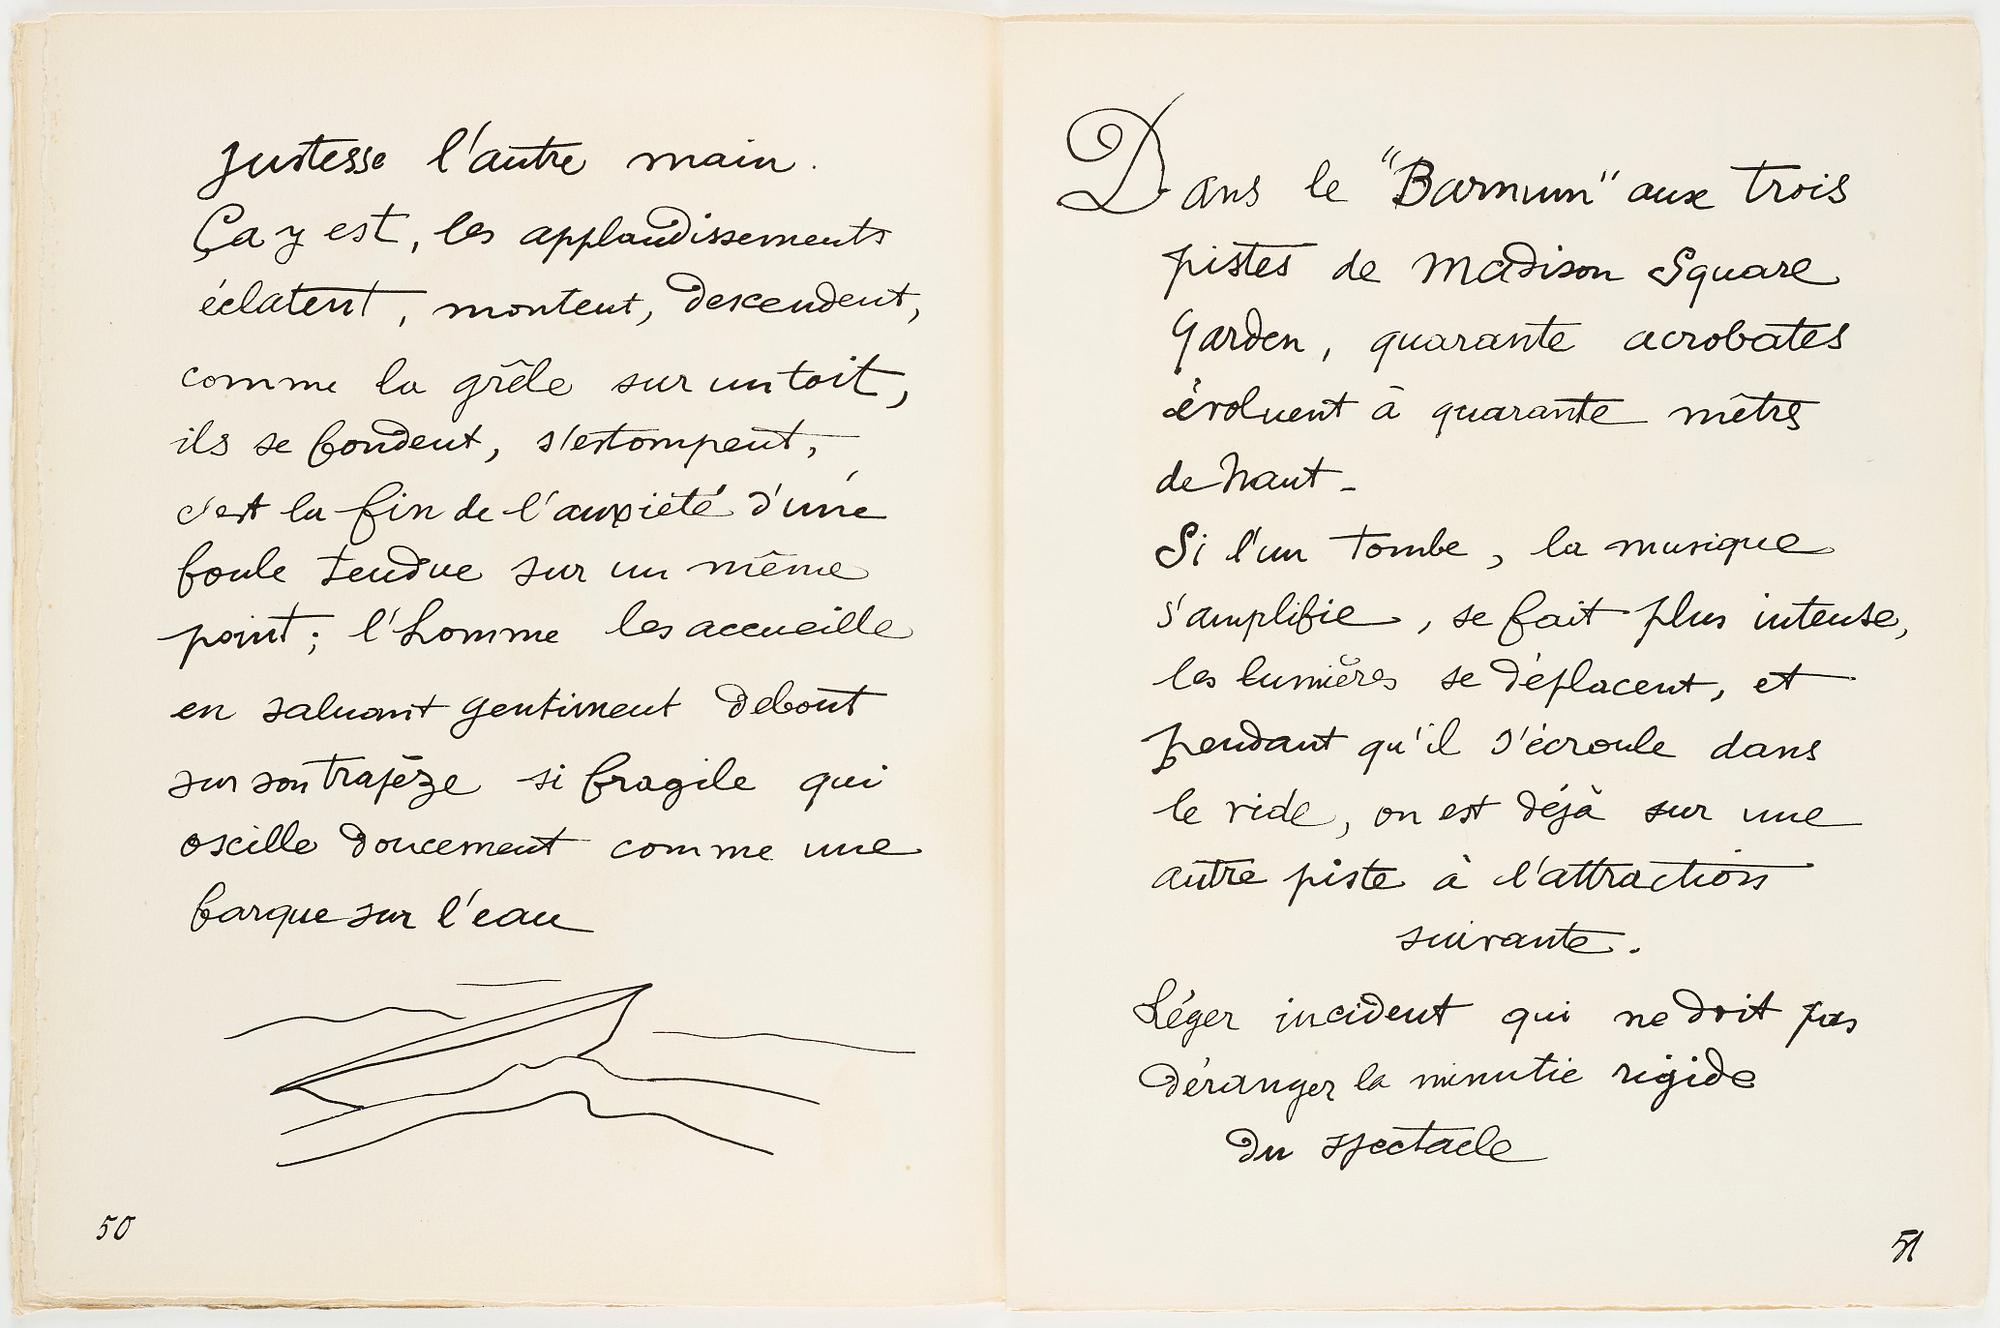 justesse l'autre main.
Ça y est, les applaudissements
éclatent, montent, descendent,
comme la grêle sur un toit,
ils se fondent, s'estompent,
c'est la fin de l'anxiété d'une
foule tendue sur un même
point ; l'homme les accueille
en saluant gentiment debout
sur son trapèze si fragile qui
oscille doucement comme une
barque sur l'eau
50
Dans le "Barnum" aux trois
pistes de Madison Square
Garden, quarante acrobates
évoluent à quarante mètrs
de haut -
Si l'un tombe, la musique
s'amplifie, se fait plus intense,
les lumières se déplacent, et
pendant qu'il s'écroule dans
le vide, on est déjà sur une
autre piste à l'attraction
suivante.
Léger incident qui ne doit pas
déranger la minutie rigide
du spectacle
51